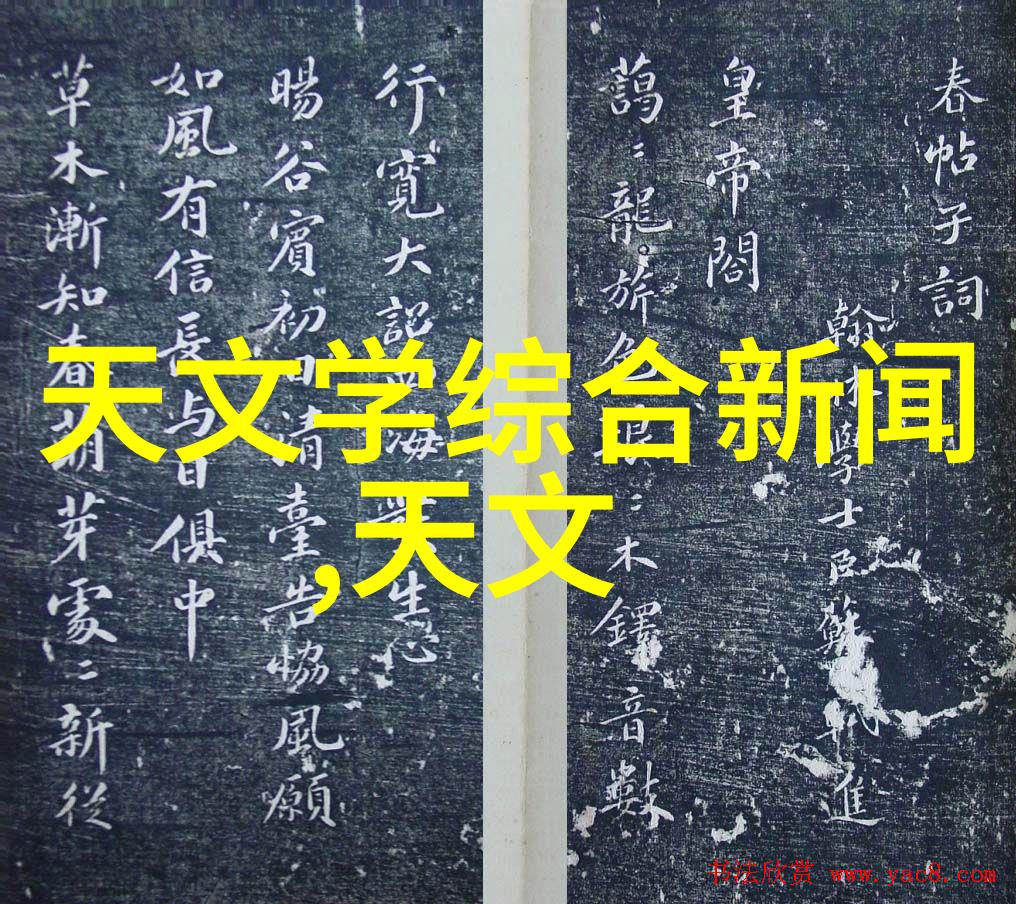 天文学综合新闻
,天文
春帖子詞
翰林學士臣蘇軾進
皇帝閤
藹〻龍旂色〻木鐸音數
行寬大詔海生心
暘谷賓初日清臺告協風願
如風有信長与日俱中
草木漸知春萌芽處〻新從
书法欣赏 www.yac8.com